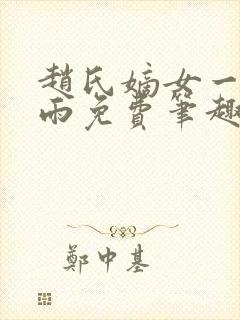 趙氏嫡女一
雨免費筆趣
鄭中基